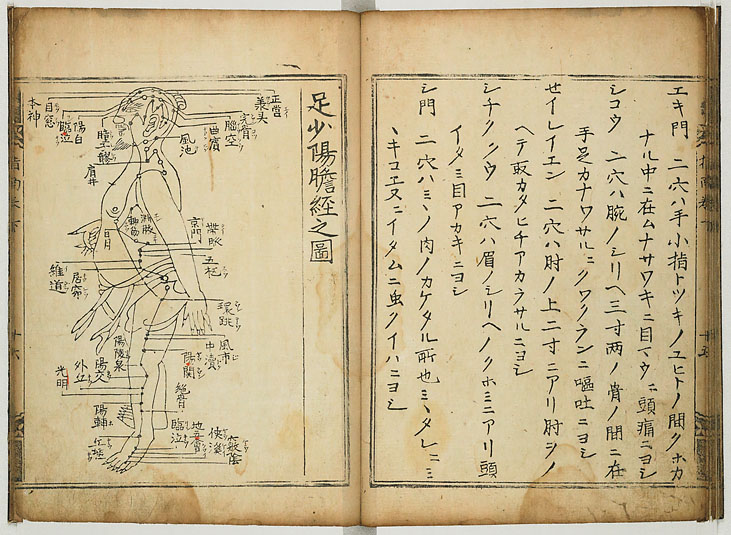 エキ門　二穴ハ手小指トツキノユヒトノ間クホカ
ナル中ニ在ムナサワキニ目マウニ頭痛ニヨシ
シコウ　二穴ハ腕ノシリヘ三寸両ノ骨ノ間ニ在
手足カナワサルニクワクランニ嘔吐ニヨシ
せイレイエン　二穴ハ肘ノ上二寸ニアリ肘ヲノ
ヘテ取カタヒチアカラサルニヨシ
シチククウ　二穴ハ眉ノシリヘノクホミニアリ頭
イタミ目アカキニヨシ
シ門　二穴ハミヽノ肉ノカケタル所也ミヽタレニミ
ヽキコエ又ニイタムニ虫クイハニヨシ
足少陽膽経之圖
正営
脳空
風池
曲鬢
陽白
臨泣
目窓
本神
肩井
日月
京門
帯脉
五枢
維道
居窌
環跳
風市
中瀆
陽関
陽陵泉
陽交
外丘
光明
陽輔
絶骨
丘墟
臨泣
地五會
侠渓
竅陰